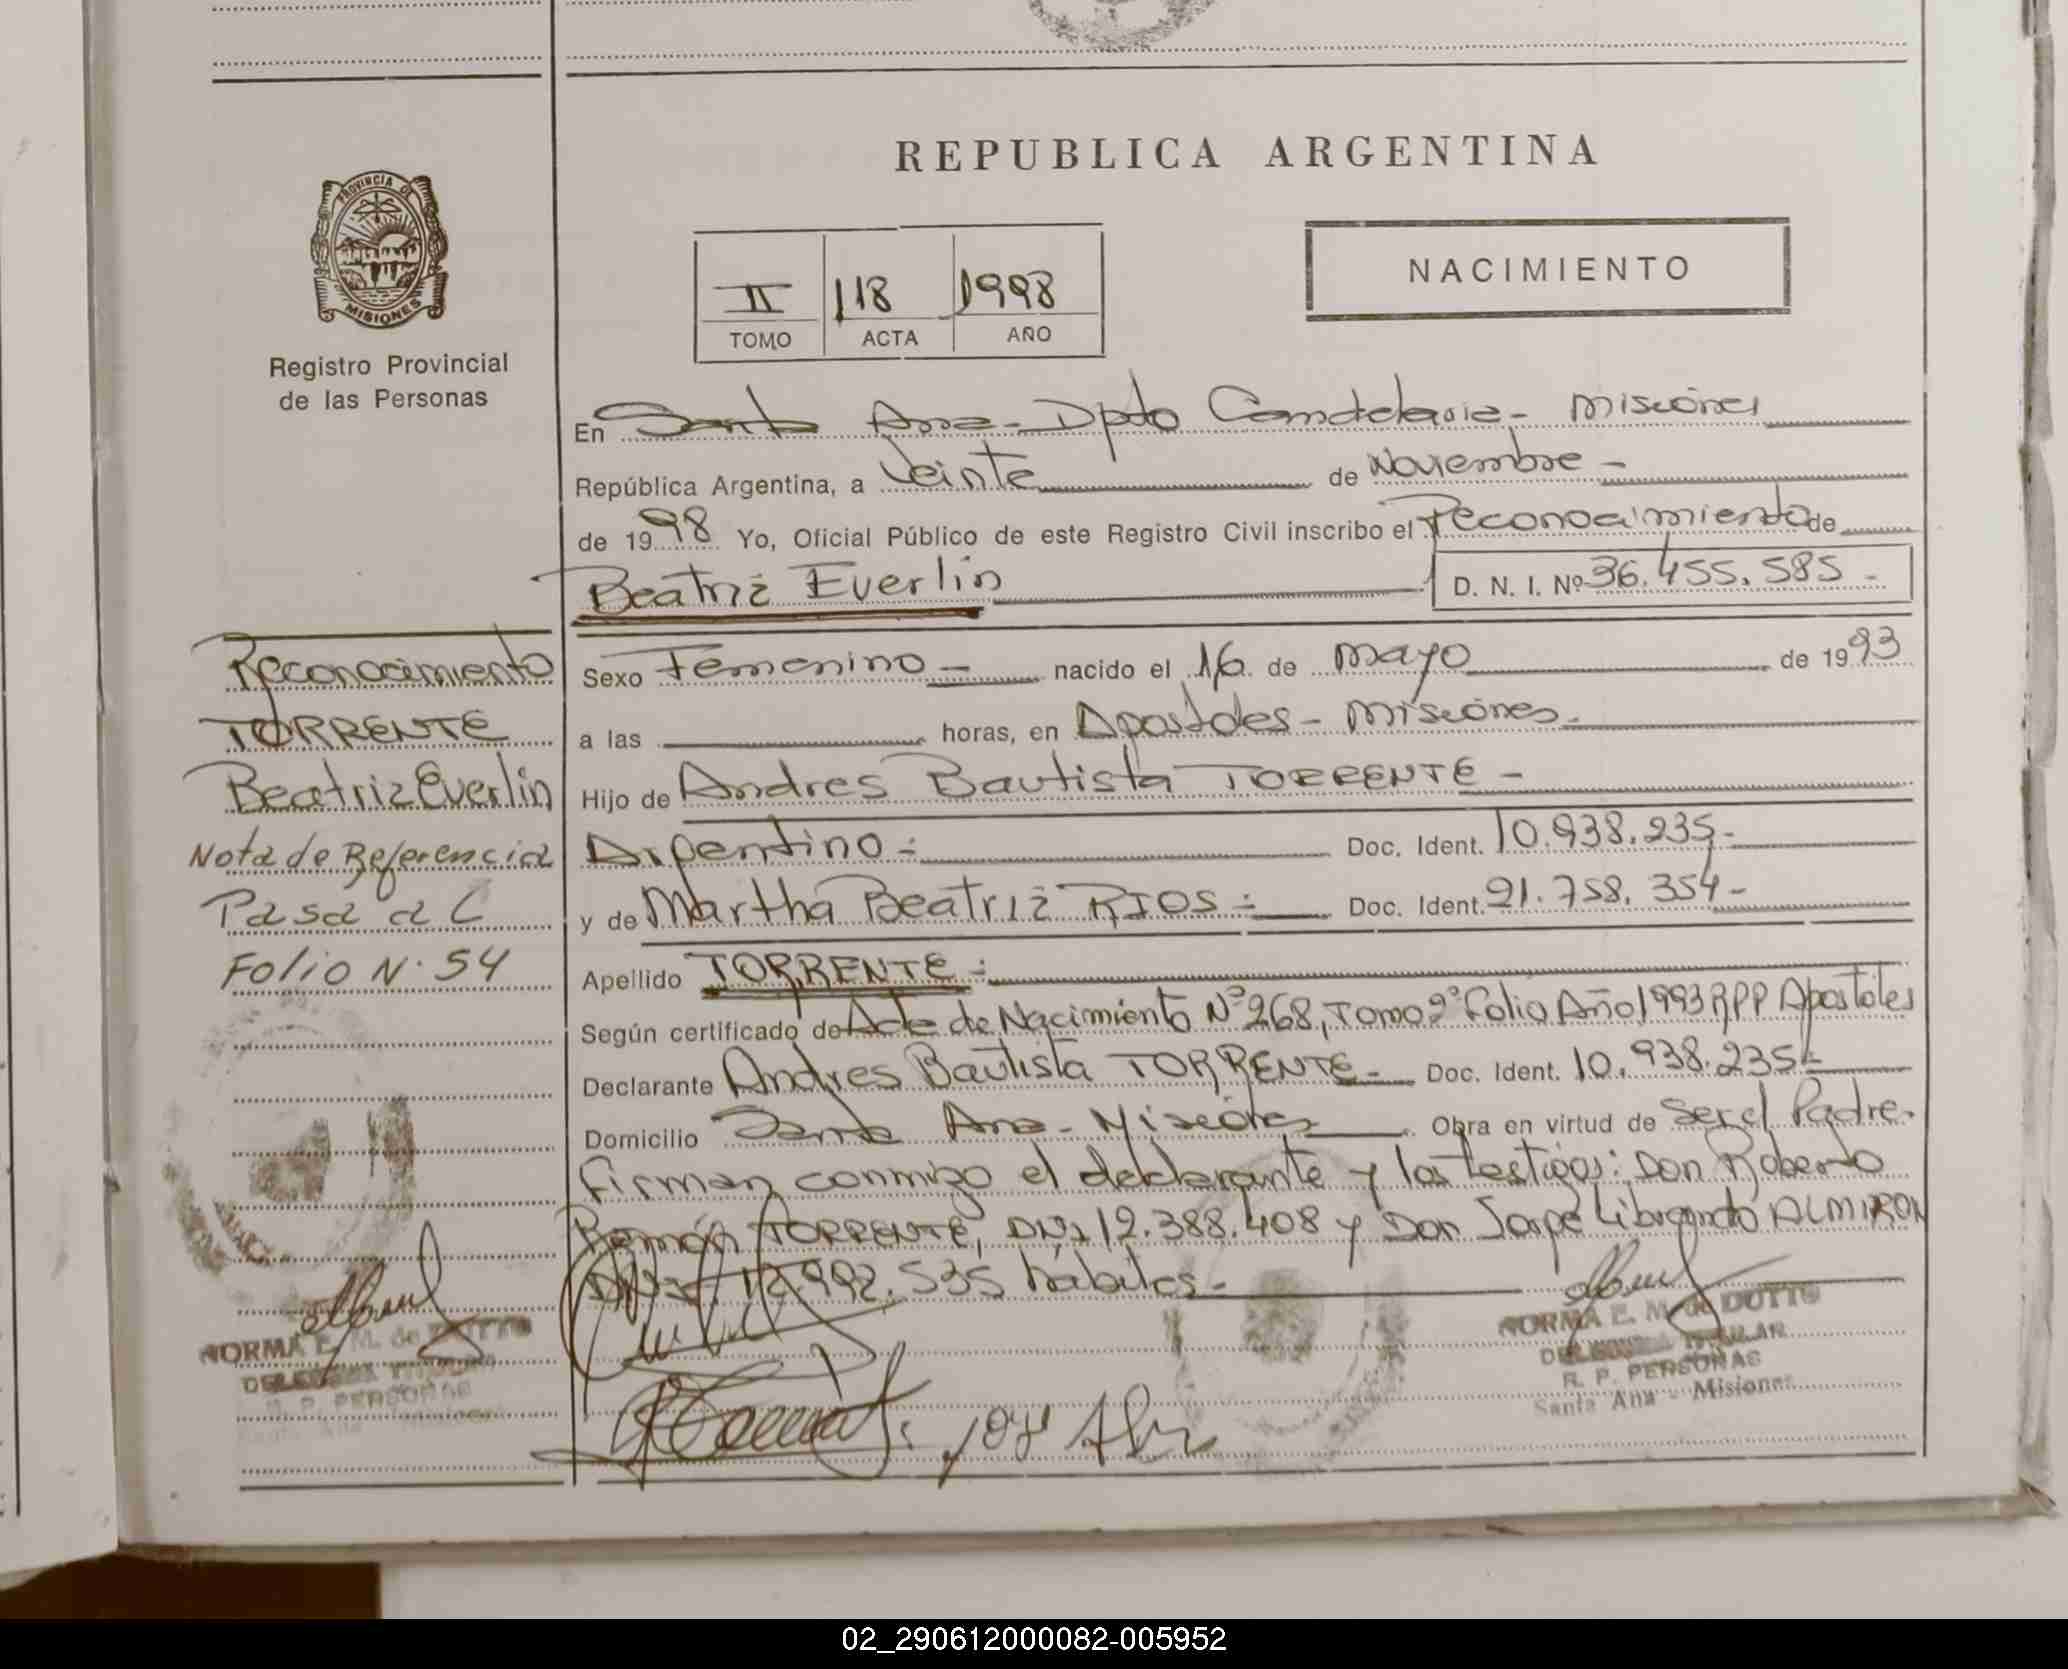 REPUBLICA ARGENTINA
PROVINCIA DE
MISIONES
Registro Provincial
de las Personas
II 118 1998
TOMO ACTA AÑO
NACIMIENTO
En Santa Ana - Dpto Candelaria - Misiones
República Argentina, a Veinte de Noviembre -
de 1998 Yo, Oficial Público de este Registro Civil inscribo el Reconocimiento de
Beatriz Everlin D. N. I. Nº 36.455.585 -
Sexo Femenino - nacido el 16 de Mayo de 1993
a las horas, en Apostoles - Misiones -
Hijo de Andres Bautista TORRENTE -
Argentino - Doc. Ident. 10.938.235 -
y de Martha Beatriz RIOS - Doc. Ident. 21.758.354 -
Apellido TORRENTE -
Según certificado de Acta de Nacimiento Nº 268, Tomo 2º Folio Año 1993 RPP Apostoles
Declarante Andres Bautista TORRENTE - Doc. Ident. 10.938.235 -
Domicilio Santa Ana - Misiones Obra en virtud de Ser el Padre.
Firman conmigo el declarante y los testigos: Don Roberto
Ramón TORRENTE, DNI 12.388.408 y Don Jorge Librando ALMIRON
DNI 12.992.535 hábiles -
Reconocimiento
TORRENTE
Beatriz Everlin
Nota de Referencia
Pasa al
Folio N. 54
NORMA E. M. de DUTTO
DELEGADA TITULAR
R. P. PERSONAS
Santa Ana - Misiones
NORMA E. M. de DUTTO
DELEGADA TITULAR
R. P. PERSONAS
Santa Ana - Misiones
02_290612000082-005952